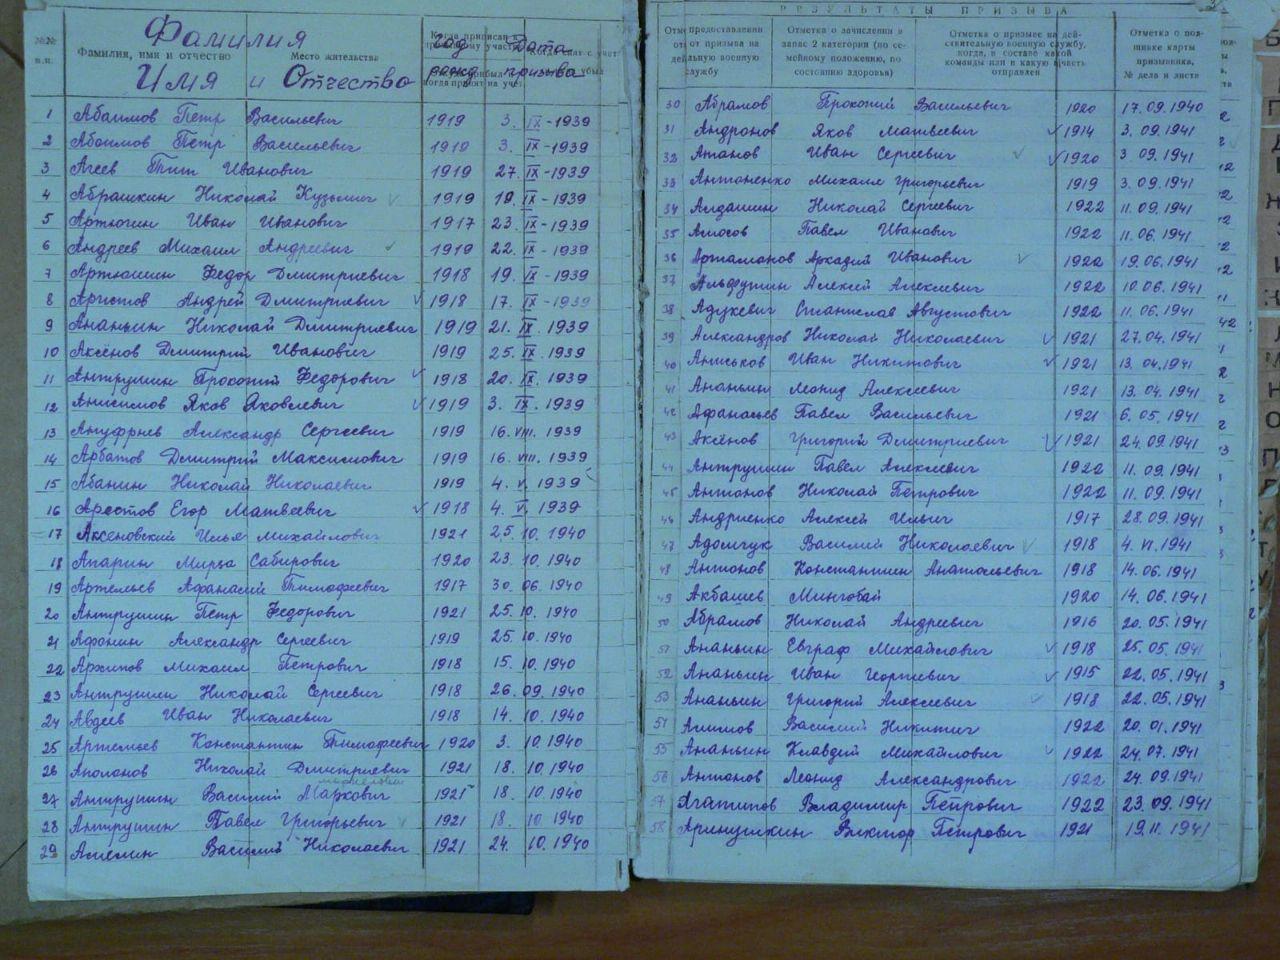 Фамилия
Имя и Отчество
№№ п.п.
Фамилия, имя и отчество
Место жительства
год рожд
Дата призыва
1 Абаимов Петр Васильевич 1919 3. IX - 1939
2 Абаимов Петр Васильевич 1919 3. IX - 1939
3 Агеев Тит Иванович 1919 27. IX - 1939
4 Абрашкин Николай Кузьмич 1919 19. IX - 1939
5 Артюгин Иван Иванович 1917 23. IX - 1939
6 Андреев Михаил Андреевич 1919 22. IX - 1939
7 Артюшин Федор Дмитриевич 1918 19. IX - 1939
8 Аристов Андрей Дмитриевич 1918 17. IX - 1939
9 Ананьин Николай Дмитриевич 1919 21. IX. 1939
10 Аксёнов Дмитрий Иванович 1919 25. IX. 1939
11 Антрушин Прокопий Федорович 1918 20. IX. 1939
12 Анисимов Яков Яковлевич 1919 3. IX. 1939
13 Ануфриев Александр Сергеевич 1919 16. VIII. 1939
14 Арбатов Дмитрий Максимович 1919 16. VIII. 1939
15 Абанин Николай Николаевич 1919 4. V. 1939
16 Арестов Егор Матвеевич 1918 4. V. 1939
17 Аксеновский Илья Михайлович 1921 25. 10. 1940
18 Апарин Мирза Сабирович 1920 23. 10. 1940
19 Артельев Афанасий Тимофеевич 1917 30. 06. 1940
20 Антрушин Петр Федорович 1921 25. 10. 1940
21 Афонин Александр Сергеевич 1919 25. 10. 1940
22 Архипов Михаил Петрович 1918 15. 10. 1940
23 Антрушин Николай Сергеевич 1918 26. 09. 1940
24 Авдеев Иван Николаевич 1918 14. 10. 1940
25 Артемьев Константин Тимофеевич 1920 3. 10. 1940
26 Аполонов Николай Дмитриевич 1921 18. 10. 1940
27 Антрушин Василий Маркович 1921 18. 10 1940
28 Антрушин Павел Григорьевич 1921 18. 10 1940
29 Амелин Василий Николаевич 1921 24. 10. 1940
РЕЗУЛЬТАТЫ ПРИЗЫВА
Отметка о зачислении в запас 2 категории (по семейному положению, по состоянию здоровья)
Отметка о призыве на действительную военную службу, когда, в составе какой команды или в какую в/часть отправлен
Отметка о подшивке карты призывника, № дела и листа
30 Абрамов Прокопий Васильевич 1920 17. 09. 1940
31 Андронов Яков Матвеевич 1914 3. 09. 1941
32 Аганов Иван Сергеевич 1920 3 09. 1941
33 Антоненко Михаил Григорьевич 1919 3. 09. 1941
34 Алдашин Николай Сергеевич 1922 11. 09. 1941
35 Амосов Павел Иванович 1922 11. 06. 1941
36 Артамонов Аркадий Иванович 1922 19. 06. 1941
37 Альфутин Алексей Алексеевич 1922 10. 06. 1941
38 Адукевич Станислав Августович 1922 11. 06. 1941
39 Александров Николай Николаевич 1921 27. 04. 1941
40 Аниськов Иван Никитович 1921 13. 04. 1941
41 Ананьин Леонид Алексеевич 1921 13. 04. 1941
42 Афанасьев Павел Васильевич 1921 6. 05. 1941
43 Аксёнов Григорий Дмитриевич 1921 24. 09. 1941
44 Антрушин Павел Алексеевич 1922 11. 09. 1941
45 Антонов Николай Петрович 1922 11. 09. 1941
46 Андриенко Алексей Ильич 1917 28. 09. 1941
47 Адомчук Василий Николаевич 1918 4. VI. 1941
48 Антонов Константин Анатольевич 1918 14. 06. 1941
49 Акбашев Мингобай 1920 14. 06. 1941
50 Абрамов Николай Андреевич 1916 20. 05. 1941
51 Ананьин Евграф Михайлович 1918 25. 05. 1941
52 Ананьин Иван Георгиевич 1915 22. 05. 1941
53 Ананьин Григорий Алексеевич 1918 22. 05. 1941
54 Алимов Василий Никитич 1922 20. 01. 1941
55 Ананьин Клавдий Михайлович 1922 24. 07. 1941
56 Антонов Леонид Александрович 1922 24. 09. 1941
57 Агапитов Владимир Петрович 1922 23. 09. 1941
58 Аринушкин Виктор Петрович 1921 19. 11. 1941